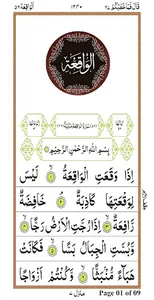 قَالَ فَمَا خَطْبُكُمْ ٢٧ ١٤٣٠ اَلْوَاقِعَة ٥٦
اَلْوَاقِعَة
بِسْمِ اللّٰهِ الرَّحْمٰنِ الرَّحِيْمِ
اِذَا وَقَعَتِ الْوَاقِعَةُ ۙ لَيْسَ
لِوَقْعَتِهَا كَاذِبَةٌ ۘ خَافِضَةٌ
رَّافِعَةٌ ۙ اِذَا رُجَّتِ الْاَرْضُ رَجًّا ۙ
وَّبُسَّتِ الْجِبَالُ بَسًّا ۙ فَكَانَتْ
هَبَآءً مُّنْۢبَثًّا ۙ وَّكُنْتُمْ اَزْوَاجًا
مَنزل ٧
Page 01 of 09